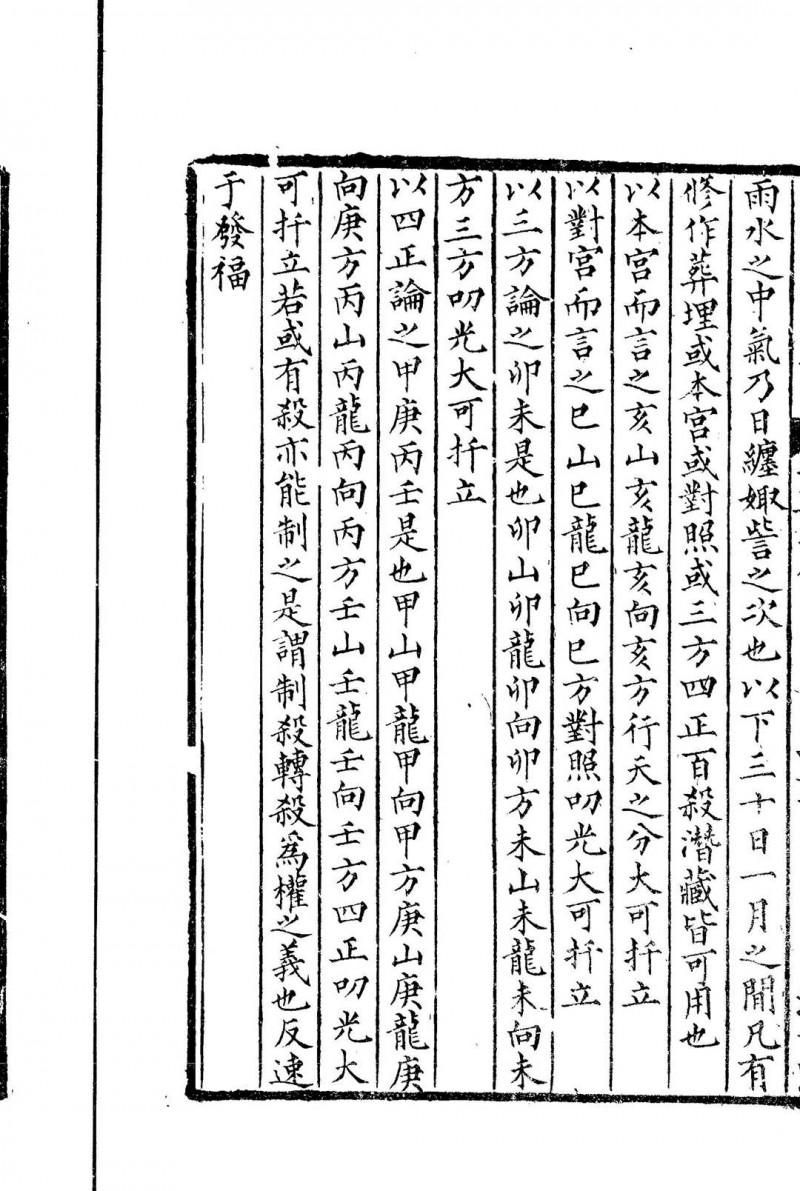 雨水之中氣乃日纏娵訾之次也以下三十日一月之間凡有
修作葬埋或本宮或對照或三方四正百殺潛藏皆可用也
以本宮而言之亥山亥龍亥向亥方行天之分大可扦立
以對宮而言之巳山巳龍巳向巳方對照叨光大可扦立
以三方論之卯未是也卯山卯龍卯向卯方未山未龍未向未
方三方叨光大可扦立
以四正論之甲庚丙壬是也甲山甲龍甲向甲方庚山庚龍庚
向庚方丙山丙龍丙向丙方壬山壬龍壬向壬方四正叨光大
可扦立若或有殺亦能制之是謂制殺轉殺為權之義也反速
于發福